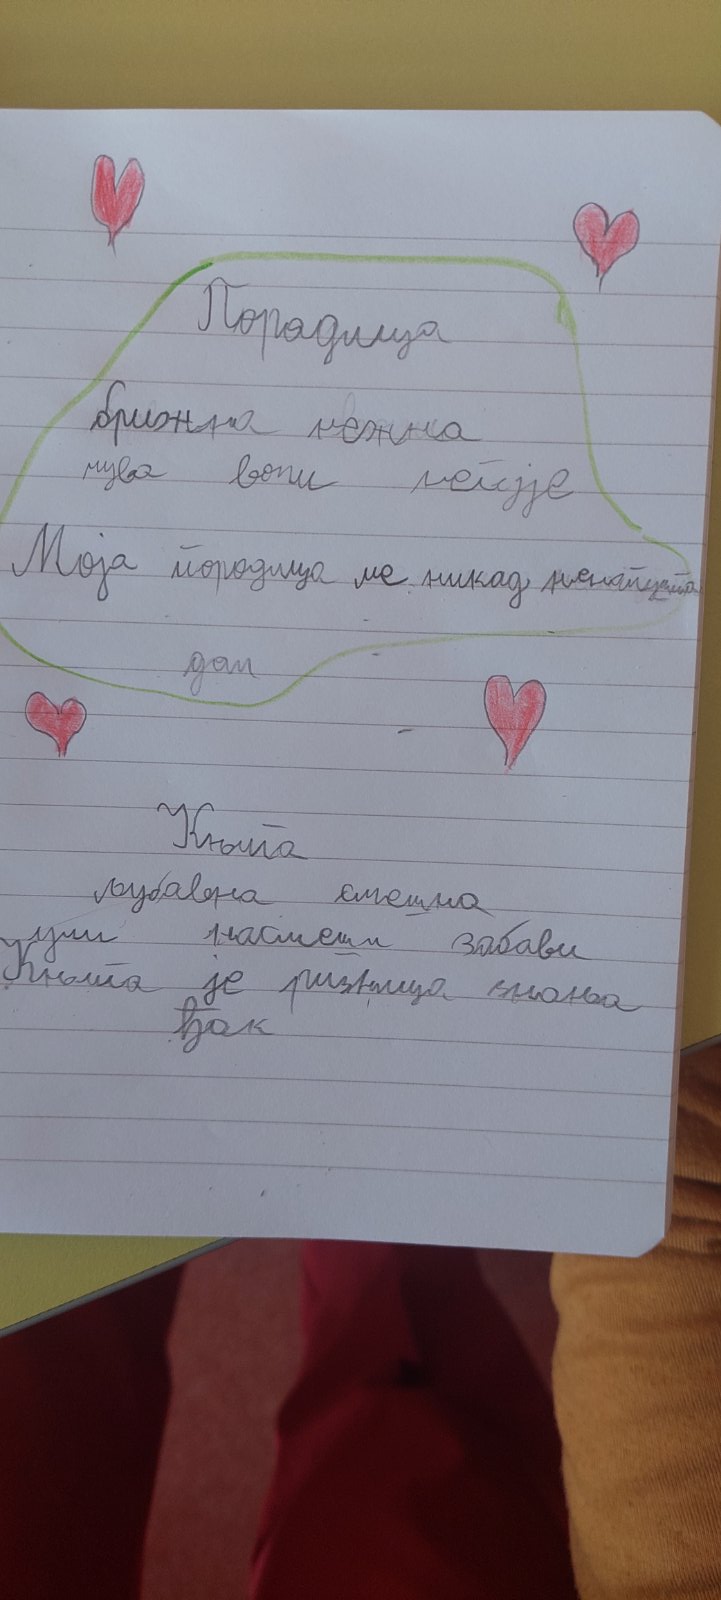 Породица
брижна нежна
чува воли негује
Моја породица ме никад ненапушта
дом
Књига
љубавна смешна
учи насмеши забави
Књига је ризница знања
ђак